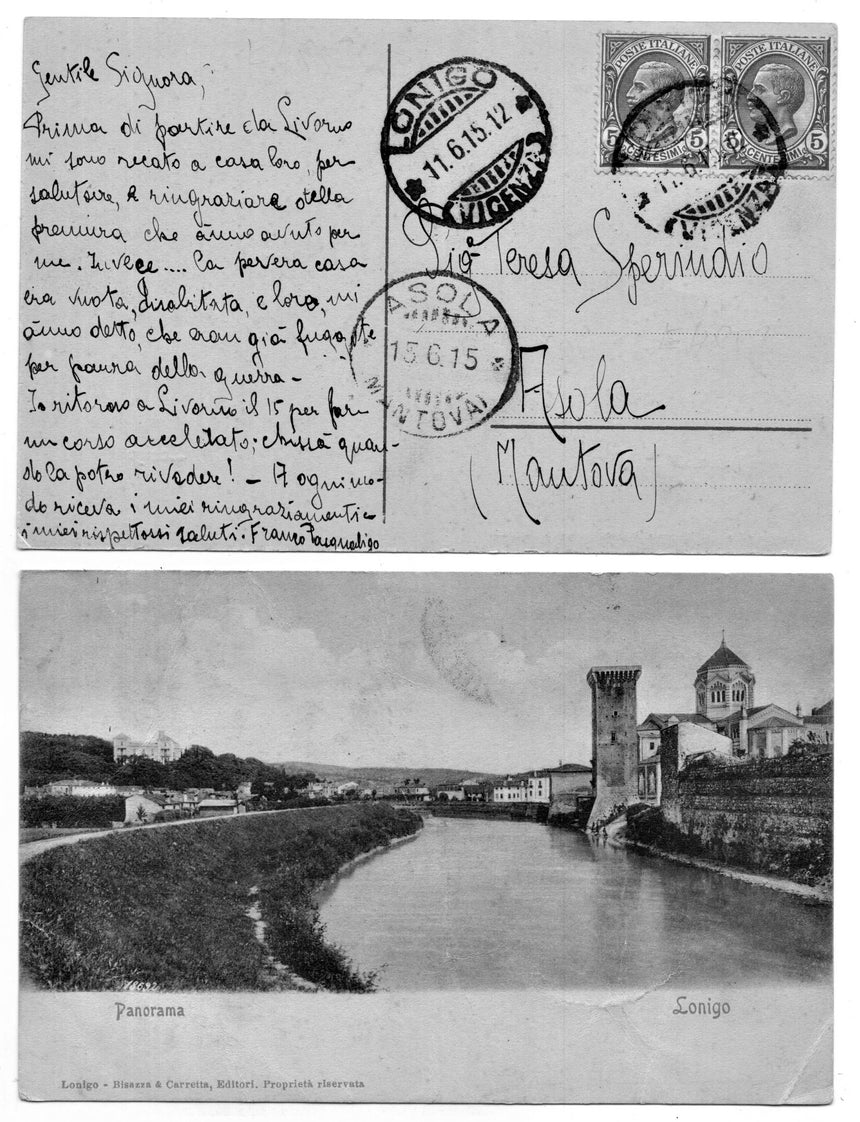 Gentile Signora,
Prima di partire da Livorno
mi sono recato a casa loro, per
salutare, e ringraziare della
premura che ànno avuto per
me. Invece .... la povera casa
era vuota, disabitata, e loro, mi
ànno detto, che eran già fuggite
per paura della guerra -
Io ritorno a Livorno il 15 per fare
un corso accelerato; chissà quan-
do la potrò rivedere! - A ogni mo-
do riceva i miei ringraziamenti e
i miei rispettosi saluti. Franco Pasqualigo
LONIGO
11.6.15.12
(VICENZA)
POSTE ITALIANE
5 CENTESIMI 5
POSTE ITALIANE
5 CENTESIMI 5
(VICENZA)
Sig.a Teresa Sperindio
ASOLA
15.6.15
(MANTOVA)
Asola
(Mantova)
Panorama
Lonigo
Lonigo - Bisazza & Carretta, Editori. Proprietà riservata